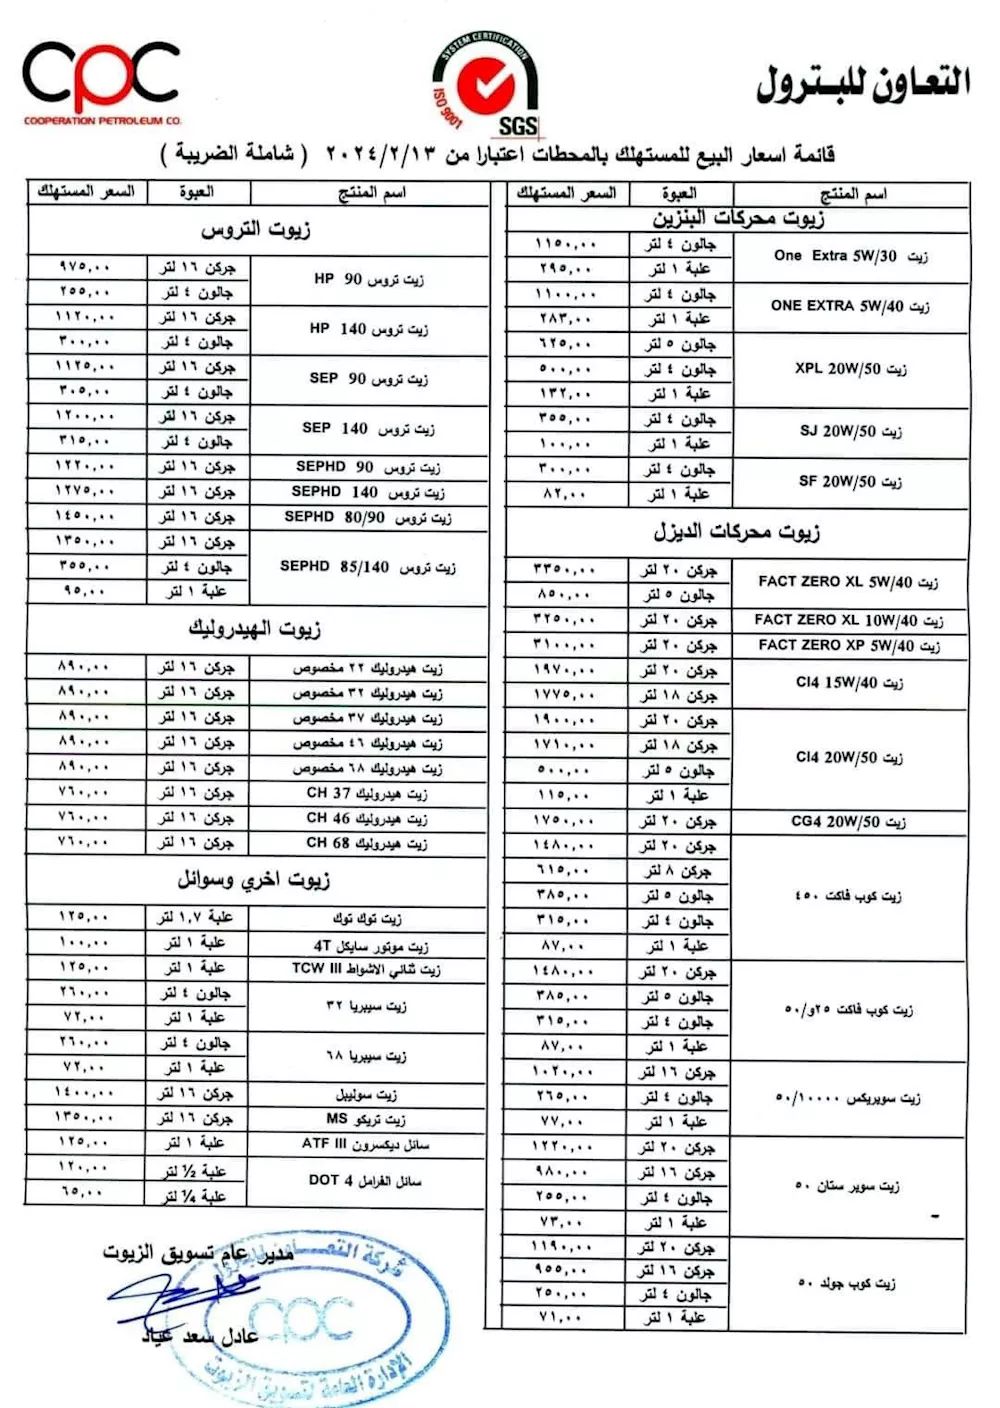 CPC
COOPERATION PETROLEUM CO.
SYSTEM CERTIFICATION
ISO 9001
SGS
التعاون للبترول
قائمة اسعار البيع للمستهلك بالمحطات اعتبارا من ٢٠٢٤/٢/١٣ ( شاملة الضريبة )
اسم المنتج العبوة السعر المستهلك
زيوت محركات البنزين
زيت One Extra 5W/30 جالون ٤ لتر ١١٥٠,٠٠
علبة ١ لتر ٢٩٥,٠٠
زيت ONE EXTRA 5W/40 جالون ٤ لتر ١١٠٠,٠٠
علبة ١ لتر ٢٨٣,٠٠
زيت XPL 20W/50 جالون ٥ لتر ٦٢٥,٠٠
جالون ٤ لتر ٥٠٠,٠٠
علبة ١ لتر ١٣٢,٠٠
زيت SJ 20W/50 جالون ٤ لتر ٣٥٥,٠٠
علبة ١ لتر ١٠٠,٠٠
زيت SF 20W/50 جالون ٤ لتر ٣٠٠,٠٠
علبة ١ لتر ٨٢,٠٠
زيوت محركات الديزل
زيت FACT ZERO XL 5W/40 جركن ٢٠ لتر ٣٣٥٠,٠٠
جالون ٥ لتر ٨٥٠,٠٠
زيت FACT ZERO XL 10W/40 جركن ٢٠ لتر ٣٢٥٠,٠٠
زيت FACT ZERO XP 5W/40 جركن ٢٠ لتر ٣١٠٠,٠٠
زيت CI4 15W/40 جركن ٢٠ لتر ١٩٧٠,٠٠
جركن ١٨ لتر ١٧٧٥,٠٠
زيت CI4 20W/50 جركن ٢٠ لتر ١٩٠٠,٠٠
جركن ١٨ لتر ١٧١٠,٠٠
جالون ٥ لتر ٥٠٠,٠٠
علبة ١ لتر ١١٥,٠٠
زيت CG4 20W/50 جركن ٢٠ لتر ١٧٥٠,٠٠
زيت كوب فاكت ٤٥٠ جركن ٢٠ لتر ١٤٨٠,٠٠
جركن ٨ لتر ٦١٥,٠٠
جالون ٥ لتر ٣٨٥,٠٠
جالون ٤ لتر ٣١٥,٠٠
علبة ١ لتر ٨٧,٠٠
زيت كوب فاكت ٢٥و/٥٠ جركن ٢٠ لتر ١٤٨٠,٠٠
جالون ٥ لتر ٣٨٥,٠٠
جالون ٤ لتر ٣١٥,٠٠
علبة ١ لتر ٨٧,٠٠
زيت سوبريكس ٥٠/١٠٠٠٠ جركن ١٦ لتر ١٠٢٠,٠٠
جالون ٤ لتر ٢٦٥,٠٠
علبة ١ لتر ٧٧,٠٠
زيت سوبر ستان ٥٠ جركن ٢٠ لتر ١٢٢٠,٠٠
جركن ١٦ لتر ٩٨٠,٠٠
جالون ٤ لتر ٢٥٥,٠٠
علبة ١ لتر ٧٣,٠٠
زيت كوب جولد ٥٠ جركن ٢٠ لتر ١١٩٠,٠٠
جركن ١٦ لتر ٩٥٥,٠٠
جالون ٤ لتر ٢٥٠,٠٠
علبة ١ لتر ٧١,٠٠
اسم المنتج العبوة السعر المستهلك
زيوت التروس
زيت تروس HP 90 جركن ١٦ لتر ٩٧٥,٠٠
جالون ٤ لتر ٢٥٥,٠٠
زيت تروس HP 140 جركن ١٦ لتر ١١٢٠,٠٠
جالون ٤ لتر ٣٠٠,٠٠
زيت تروس SEP 90 جركن ١٦ لتر ١١٢٥,٠٠
جالون ٤ لتر ٣٠٥,٠٠
زيت تروس SEP 140 جركن ١٦ لتر ١٢٠٠,٠٠
جالون ٤ لتر ٣١٥,٠٠
زيت تروس SEPHD 90 جركن ١٦ لتر ١٢٢٠,٠٠
زيت تروس SEPHD 140 جركن ١٦ لتر ١٢٧٥,٠٠
زيت تروس SEPHD 80/90 جركن ١٦ لتر ١٤٥٠,٠٠
زيت تروس SEPHD 85/140 جركن ١٦ لتر ١٣٥٠,٠٠
جالون ٤ لتر ٣٥٥,٠٠
علبة ١ لتر ٩٥,٠٠
زيوت الهيدروليك
زيت هيدروليك ٢٢ مخصوص جركن ١٦ لتر ٨٩٠,٠٠
زيت هيدروليك ٣٢ مخصوص جركن ١٦ لتر ٨٩٠,٠٠
زيت هيدروليك ٣٧ مخصوص جركن ١٦ لتر ٨٩٠,٠٠
زيت هيدروليك ٤٦ مخصوص جركن ١٦ لتر ٨٩٠,٠٠
زيت هيدروليك ٦٨ مخصوص جركن ١٦ لتر ٨٩٠,٠٠
زيت هيدروليك CH 37 جركن ١٦ لتر ٧٦٠,٠٠
زيت هيدروليك CH 46 جركن ١٦ لتر ٧٦٠,٠٠
زيت هيدروليك CH 68 جركن ١٦ لتر ٧٦٠,٠٠
زيوت اخري وسوائل
زيت توك توك علبة ١,٧ لتر ١٢٥,٠٠
زيت موتور سايكل 4T علبة ١ لتر ١٠٠,٠٠
زيت ثنائي الاشواط TCW III علبة ١ لتر ١٢٥,٠٠
زيت سيبريا ٣٢ جالون ٤ لتر ٢٦٠,٠٠
علبة ١ لتر ٧٢,٠٠
زيت سيبريا ٦٨ جالون ٤ لتر ٢٦٠,٠٠
علبة ١ لتر ٧٢,٠٠
زيت سوليبل جركن ١٦ لتر ١٤٠٠,٠٠
زيت تريكو MS جركن ١٦ لتر ١٣٥٠,٠٠
سائل ديكسرون ATF III علبة ١ لتر ١٢٥,٠٠
سائل الفرامل DOT 4 علبة ½ لتر ١٢٠,٠٠
علبة ¼ لتر ٦٥,٠٠
مدير عام تسويق الزيوت
عادل سعد عياد
شركة التعاون للبترول
CPC
الإدارة العامة لتسويق الزيوت